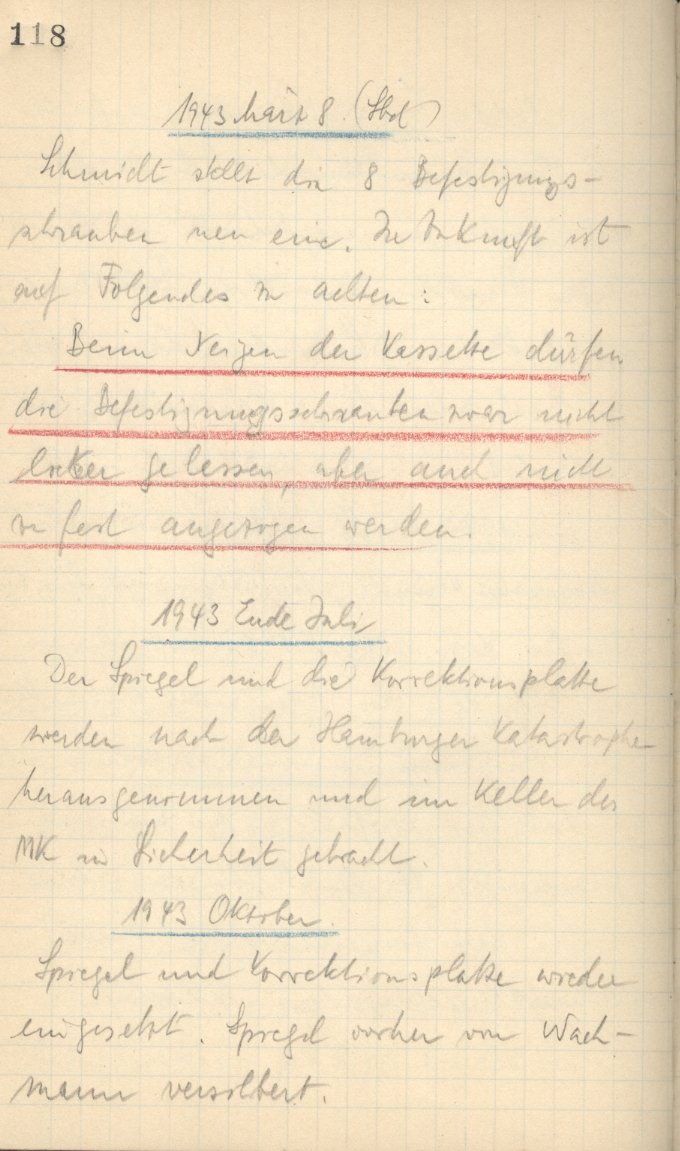 118
1943 März 8. (Sbd)
Schmidt stellt die 8 Befestigungs-
schrauben neu ein. In Zukunft ist
auf Folgendes zu achten:
Beim Neigen der Kassette dürfen
die Befestigungsschrauben zwar nicht
locker gelassen, aber auch nicht
zu fest angezogen werden.
1943 Ende Juli
Der Spiegel und die Korrektionsplatte
werden nach der Hamburger Katastrophe
herausgenommen und im Keller des
MK in Sicherheit gebracht.
1943 Oktober.
Spiegel und Korrektionsplatte wieder
eingesetzt. Spiegel vorher von Wach-
mann versilbert.